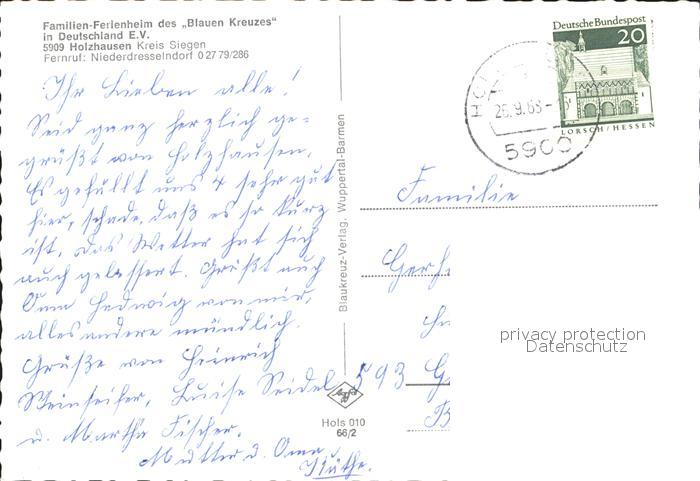 Familien-Ferienheim des „Blauen Kreuzes"
in Deutschland E.V.
5909 Holzhausen Kreis Siegen
Fernruf: Niederdresselndorf 0 27 79/286
Ihr Lieben alle!
Seid ganz herzlich ge-
grüßt von Holzhausen.
Es gefällt uns 4 sehr gut
hier, schade, daß es so kurz
ist. Das Wetter hat sich
auch gebessert. Grüßt auch
Oma Hedwig von mir,
alles andere mündlich.
Grüße von Heinrich
Weinseifer, Luise Seidel,
u. Martha Fischer.
Mutter u. Oma
Käthe.
Blaukreuz-Verlag, Wuppertal-Barmen
Agfa
Hols 010
66/2
Deutsche Bundespost
20
LORSCH/HESSEN
HOL
25.9.68-
5900
Familie
Gerh
593 G
privacy protection
Datenschutz